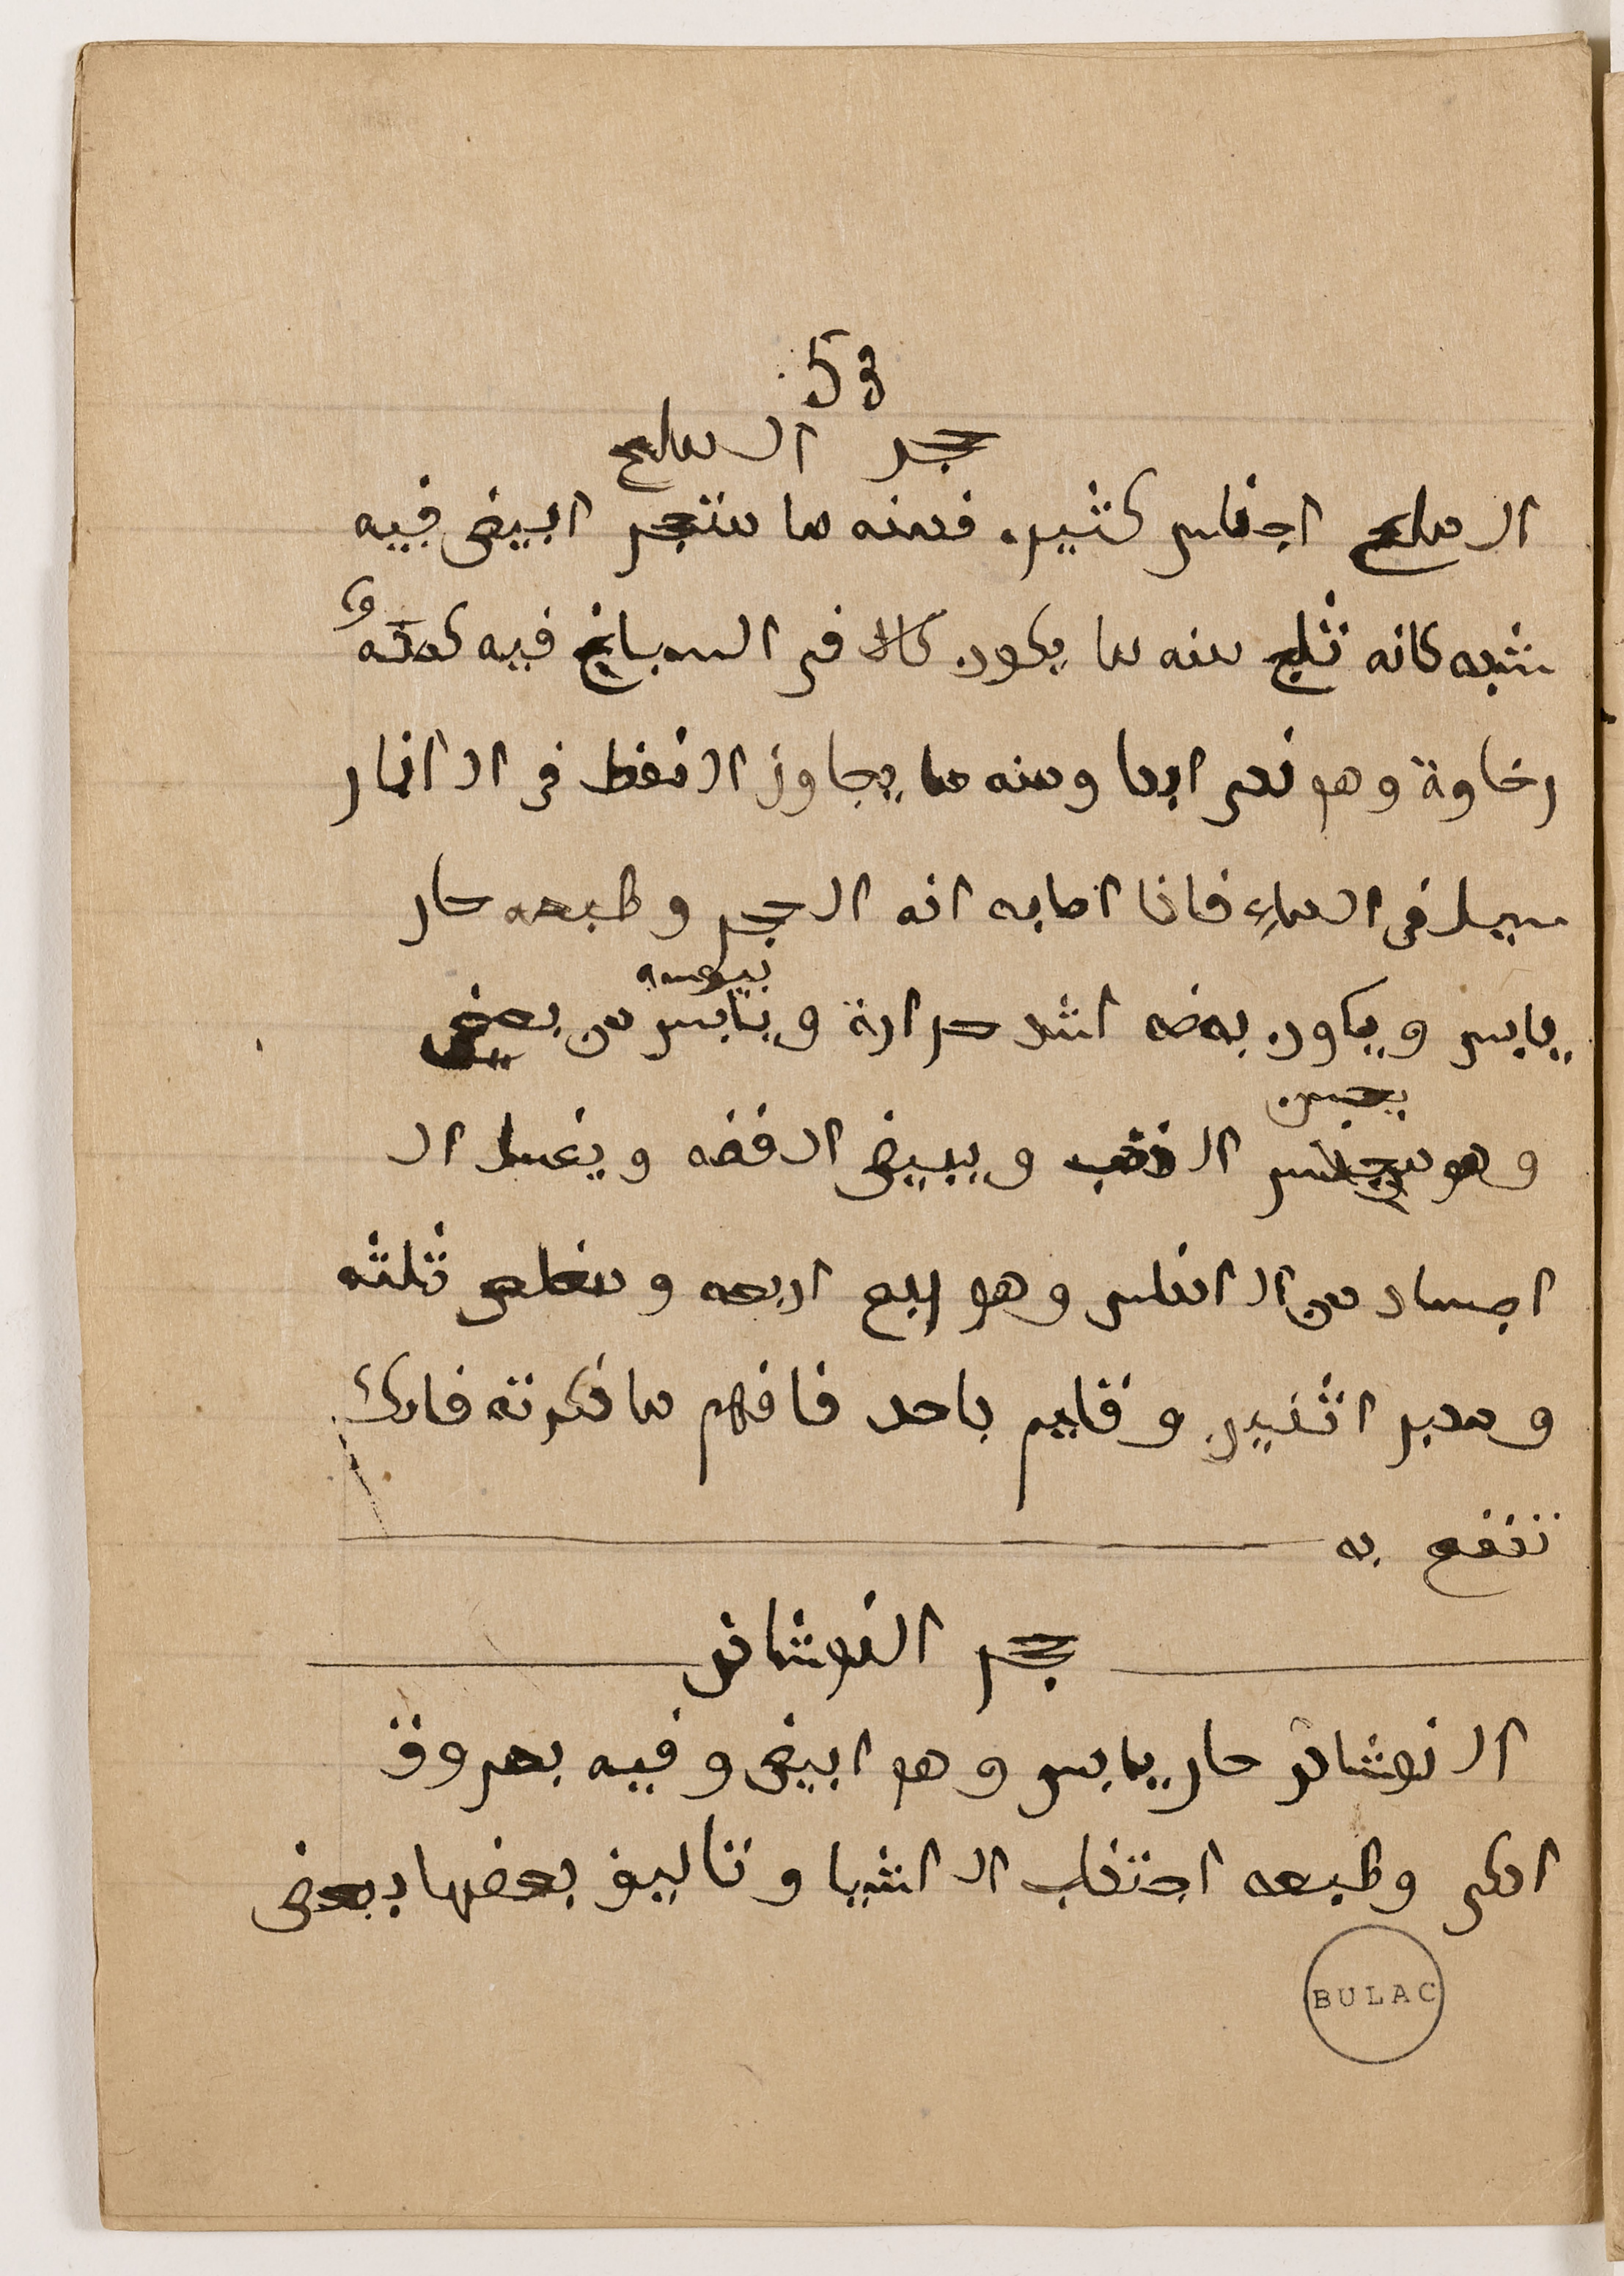 53
حجر الملح
الملح اجناس كثيره فمنه ما متحجر ابيض فيه
شبه كانه ثلج منه ما يكون كالا في السباخ فيه كمتة و
رخاوة وهو نحى ايضا ومنه ما يجاوز النفط في النار
سيل في الماء فاذا اصابه انه الحجر وطبعه حار
يابس ويكون بعضه اشد حرارة ويابس من بعض
يبوسه
وهو الذهب ويبيض الفضه ويغسل ال
يحسن
اجساد من الانفس وهو اربعه و ثلثه
ومدبر اثنين وقايم باحد فافهم ما ذكرته فانك
تنفع به
حجر النوشاذر
النوشاذر حار يابس وهو ابيض وفيه بعروق
اكمر وطبعه اجتذاب الاشيا وتاليف بعضها ببعض
BULAC